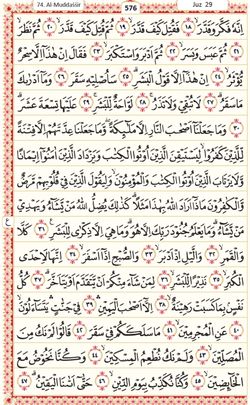 74. Al-Muddaśśir 576 Juz 29
إِنَّهُ فَكَّرَ وَقَدَّرَ ١٨ فَقُتِلَ كَيْفَ قَدَّرَ ١٩ ثُمَّ قُتِلَ كَيْفَ قَدَّرَ ٢٠ ثُمَّ نَظَرَ
٢١ ثُمَّ عَبَسَ وَبَسَرَ ٢٢ ثُمَّ أَدْبَرَ وَاسْتَكْبَرَ ٢٣ فَقَالَ إِنْ هَٰذَا إِلَّا سِحْرٌ
يُؤْثَرُ ٢٤ إِنْ هَٰذَا إِلَّا قَوْلُ الْبَشَرِ ٢٥ سَأُصْلِيهِ سَقَرَ ٢٦ وَمَا أَدْرَاكَ
مَا سَقَرُ ٢٧ لَا تُبْقِي وَلَا تَذَرُ ٢٨ لَوَّاحَةٌ لِلْبَشَرِ ٢٩ عَلَيْهَا تِسْعَةَ عَشَرَ
٣٠ وَمَا جَعَلْنَا أَصْحَابَ النَّارِ إِلَّا مَلَائِكَةً وَمَا جَعَلْنَا عِدَّتَهُمْ إِلَّا فِتْنَةً
لِلَّذِينَ كَفَرُوا لِيَسْتَيْقِنَ الَّذِينَ أُوتُوا الْكِتَابَ وَيَزْدَادَ الَّذِينَ آمَنُوا إِيمَانًا
وَلَا يَرْتَابَ الَّذِينَ أُوتُوا الْكِتَابَ وَالْمُؤْمِنُونَ وَلِيَقُولَ الَّذِينَ فِي قُلُوبِهِمْ مَرَضٌ
وَالْكَافِرُونَ مَاذَا أَرَادَ اللَّهُ بِهَٰذَا مَثَلًا كَذَٰلِكَ يُضِلُّ اللَّهُ مَنْ يَشَاءُ وَيَهْدِي
مَنْ يَشَاءُ وَمَا يَعْلَمُ جُنُودَ رَبِّكَ إِلَّا هُوَ وَمَا هِيَ إِلَّا ذِكْرَىٰ لِلْبَشَرِ ٣١ كَلَّا
وَالْقَمَرِ ٣٢ وَاللَّيْلِ إِذْ أَدْبَرَ ٣٣ وَالصُّبْحِ إِذَا أَسْفَرَ ٣٤ إِنَّهَا لَإِحْدَى
الْكُبَرِ ٣٥ نَذِيرًا لِلْبَشَرِ ٣٦ لِمَنْ شَاءَ مِنْكُمْ أَنْ يَتَقَدَّمَ أَوْ يَتَأَخَّرَ ٣٧ كُلُّ
نَفْسٍ بِمَا كَسَبَتْ رَهِينَةٌ ٣٨ إِلَّا أَصْحَابَ الْيَمِينِ ٣٩ فِي جَنَّاتٍ يَتَسَاءَلُونَ
٤٠ عَنِ الْمُجْرِمِينَ ٤١ مَا سَلَكَكُمْ فِي سَقَرَ ٤٢ قَالُوا لَمْ نَكُ مِنَ
الْمُصَلِّينَ ٤٣ وَلَمْ نَكُ نُطْعِمُ الْمِسْكِينَ ٤٤ وَكُنَّا نَخُوضُ مَعَ
الْخَائِضِينَ ٤٥ وَكُنَّا نُكَذِّبُ بِيَوْمِ الدِّينِ ٤٦ حَتَّىٰ أَتَانَا الْيَقِينُ ٤٧
ع